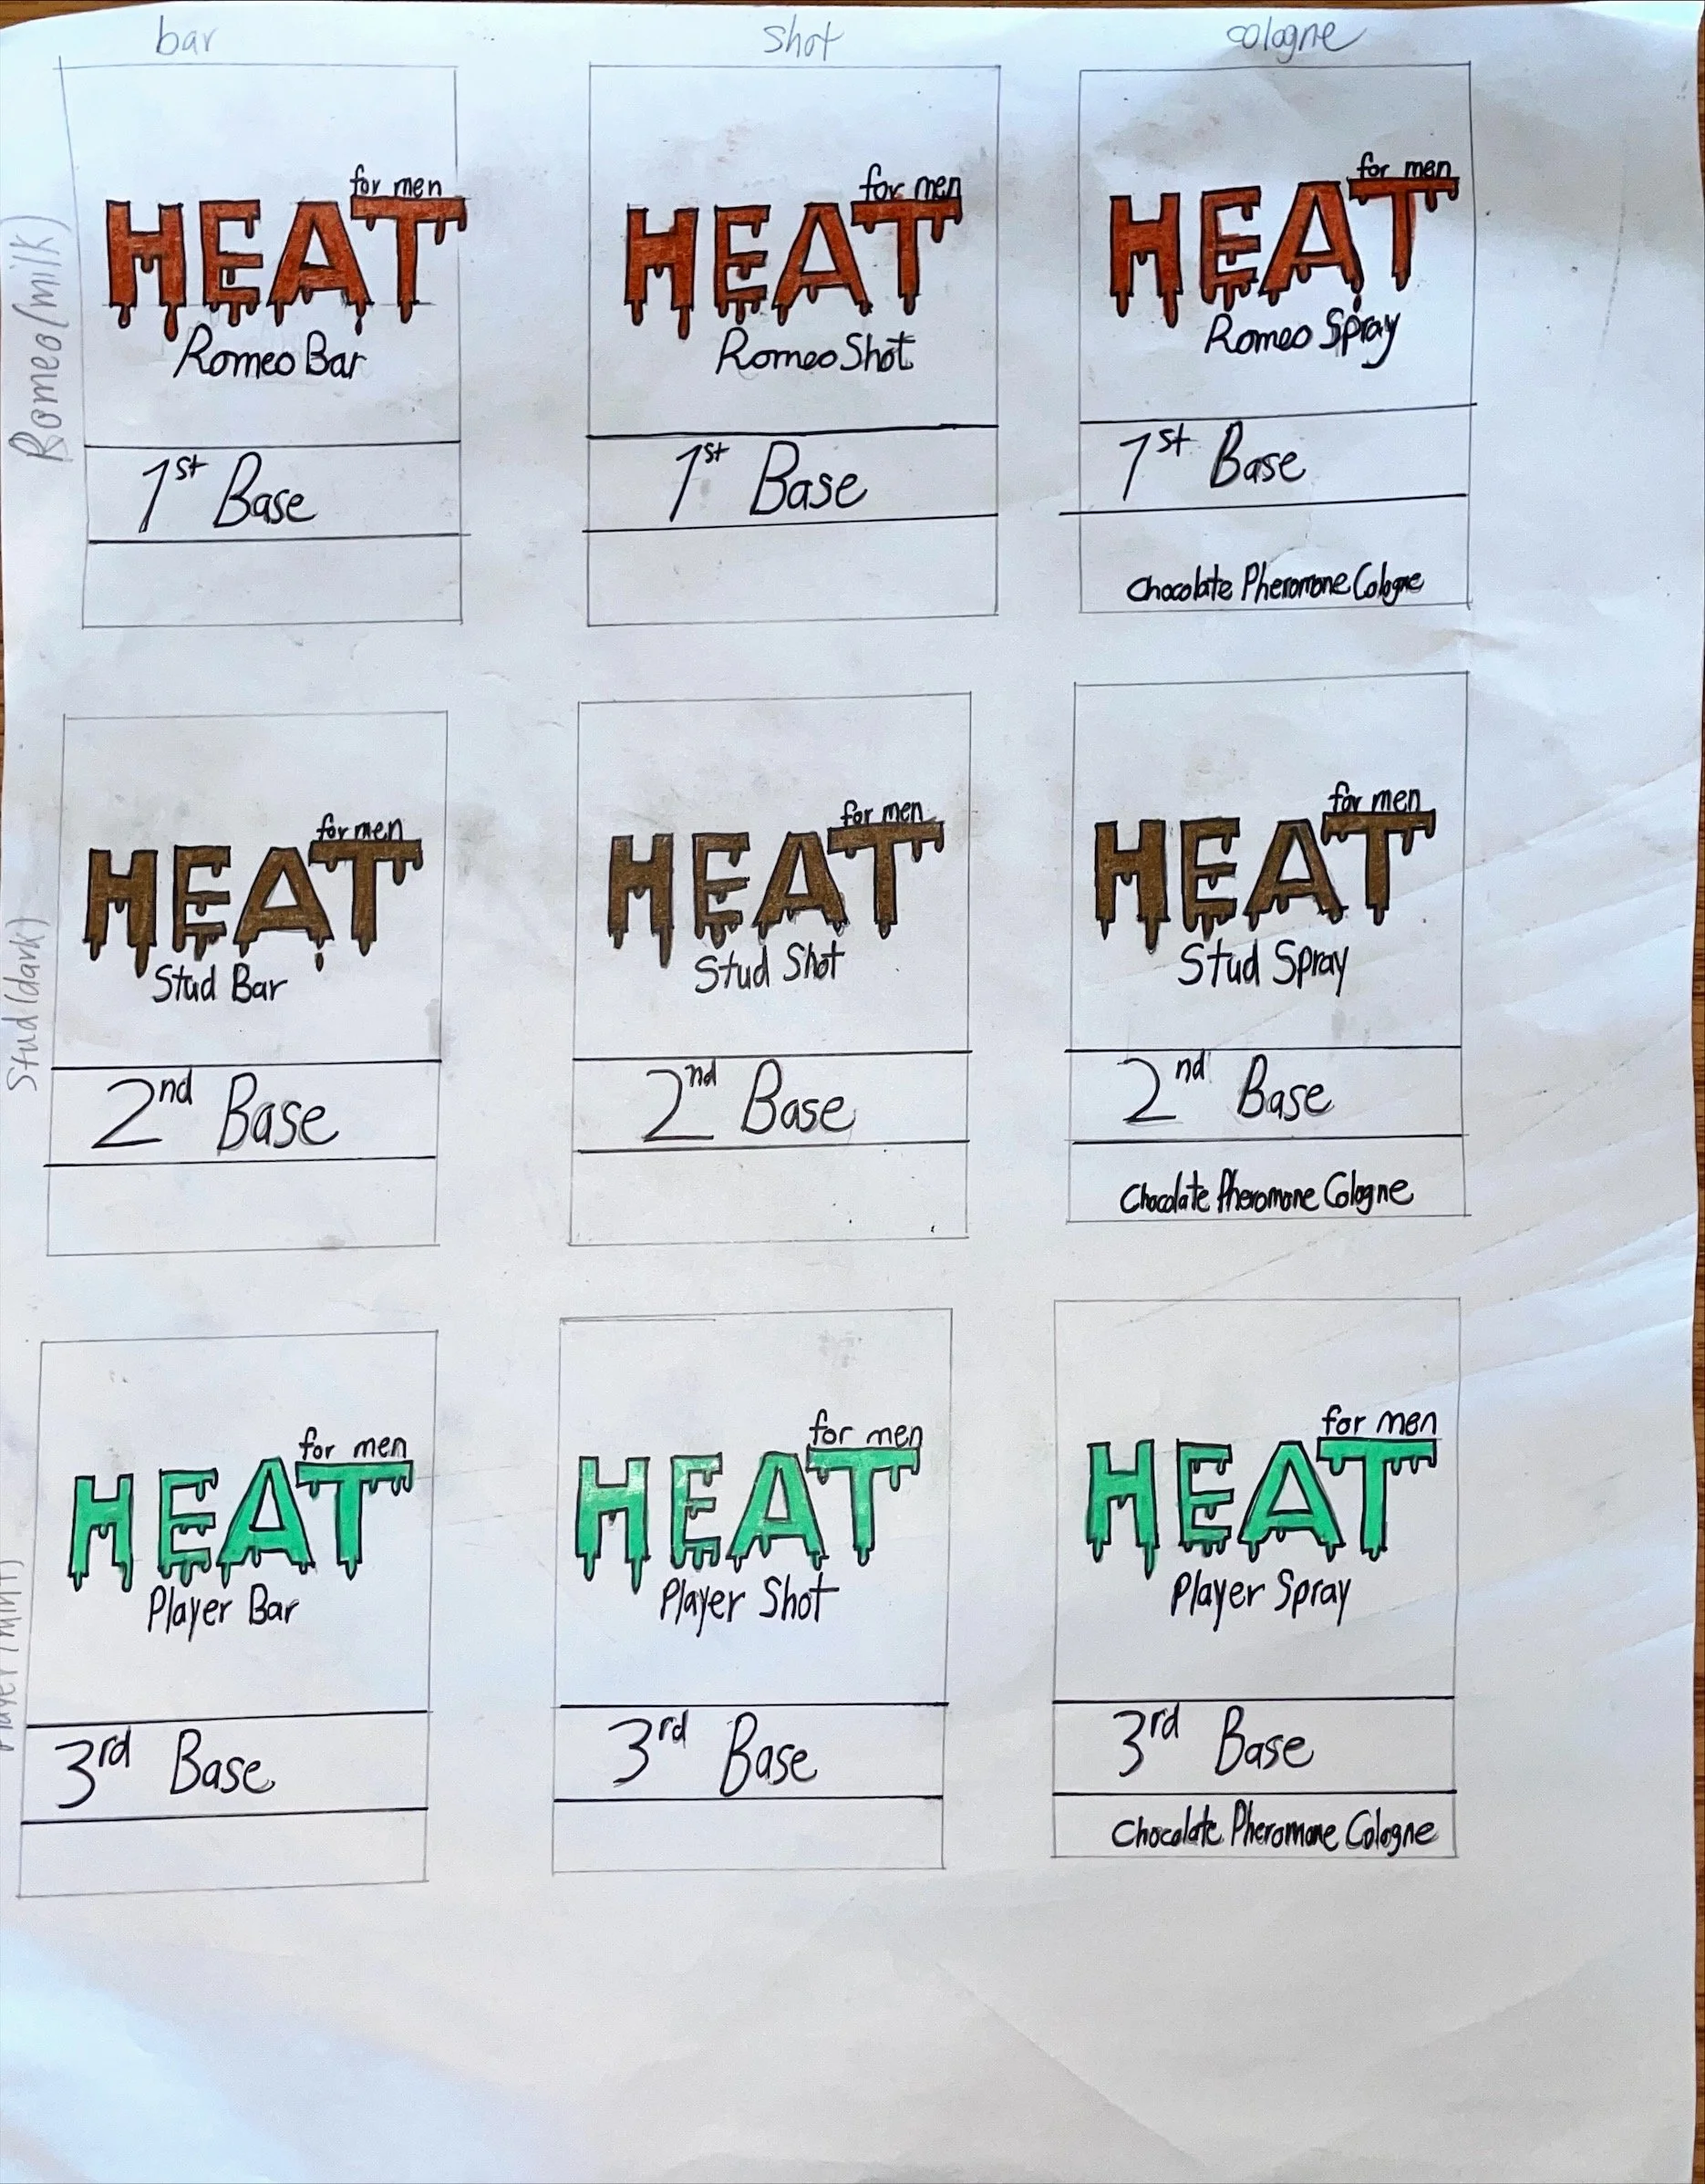 bar shot cologne
Romeo (milk)
for men
HEAT
Romeo Bar
1st Base
for men
HEAT
Romeo Shot
1st Base
for men
HEAT
Romeo Spray
1st Base
Chocolate Pheromone Cologne
Stud (dark)
for men
HEAT
Stud Bar
2nd Base
for men
HEAT
Stud Shot
2nd Base
for men
HEAT
Stud Spray
2nd Base
Chocolate Pheromone Cologne
Player (mint)
for men
HEAT
Player Bar
3rd Base
for men
HEAT
Player Shot
3rd Base
for men
HEAT
Player Spray
3rd Base
Chocolate Pheromone Cologne